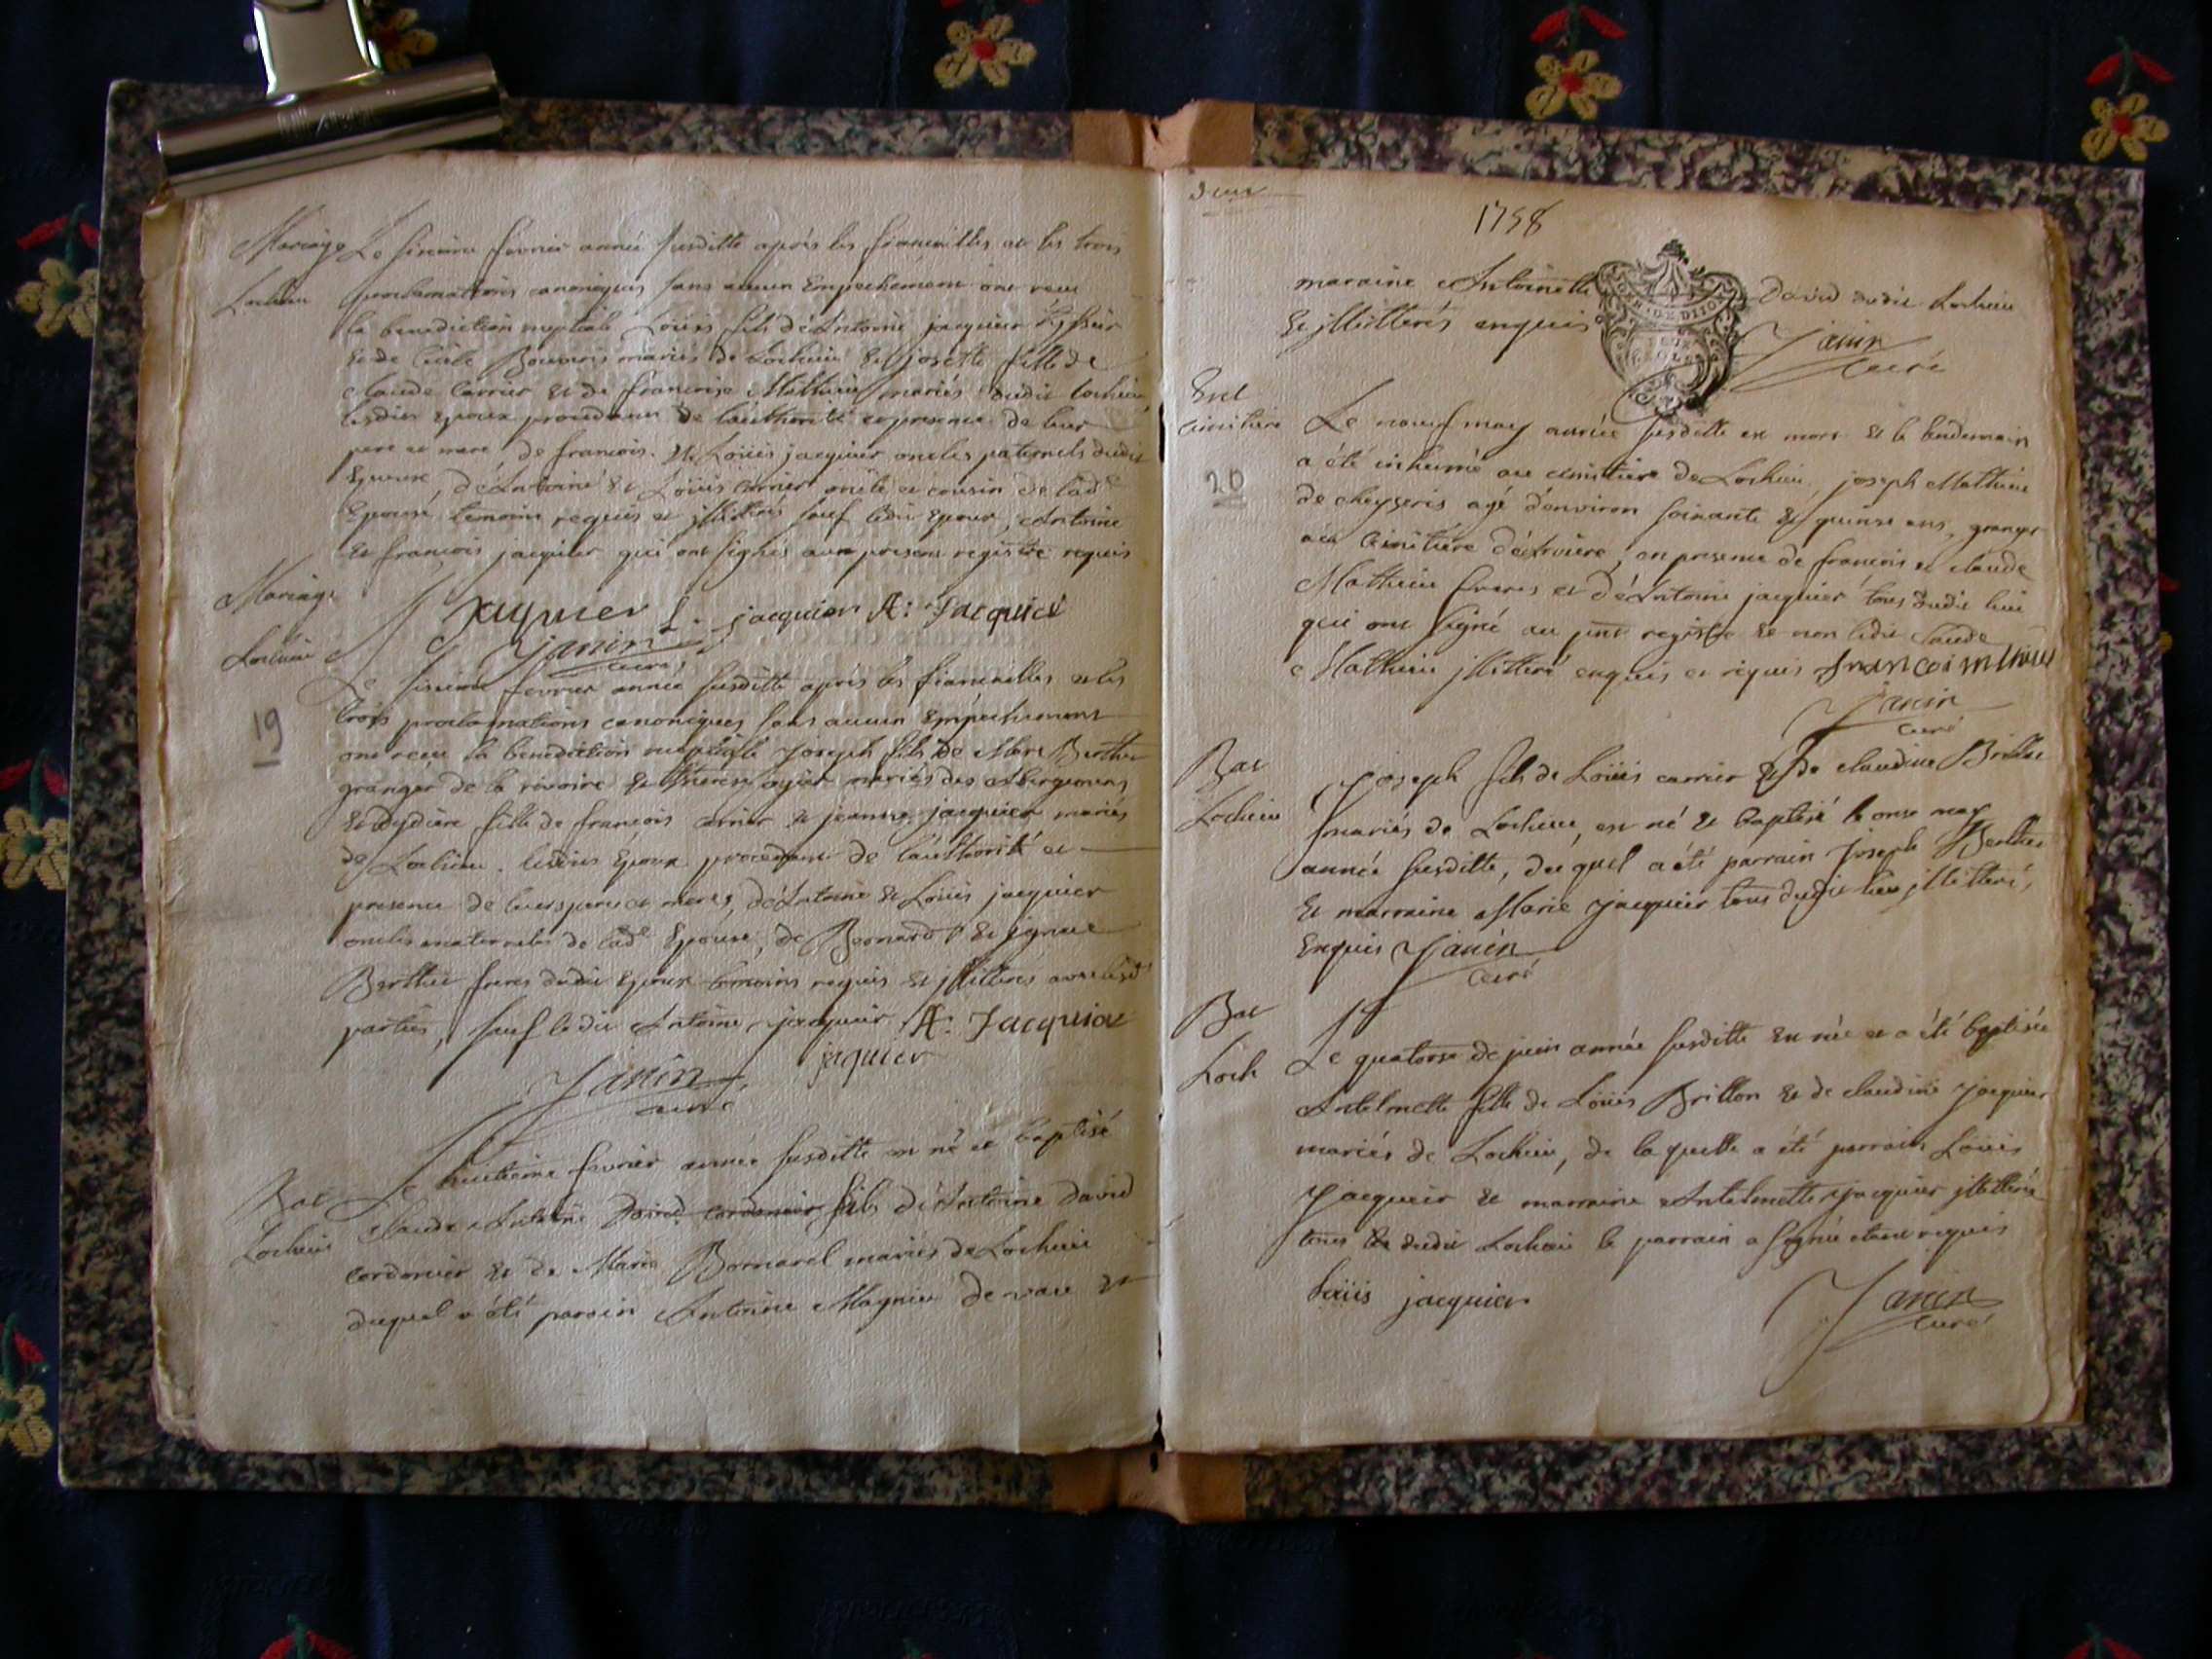 Mariage Le sixieme fevrier année susditte après les fiancailles et les trois
Lochieu proclamations canoniques sans aucun Empechement ont receu
la benediction nuptiale Loüis fils d'Antoine jacquier
et de Bouvois mariés de Lochieu et josette fille de
claude Carrier et de francoise Mathieu mariés dudit lochieu
lesdits epoux procedant de l'authorité en presence de leur
pere et mere de francois et Loüis jacquier oncles paternels dudit
Epoux, d'Antoine et Loüis Carrier oncle et cousin de lad.e
Epouse temoins requis et jllitterés sauf ledit epoux, Antoine
et francois jacquier qui ont signés au present registre requis
Jaquier L. jacquier A: Jacquier
Janin curé
Mariage
Lochieu
Le sixieme fevrier année susditte après les fiancailles et les
19
trois proclamations canoniques sans aucun Empechement
ont receu la benediction nuptialle Joseph fils de Marc Berthet
granger de la rivoire et therese mariés des Abergemens
et dydiere fille de francois Carrier et jeanne jacquier mariés
de Lochieu. lesdits Epoux procedant de l'authorité et
presence de leurs peres et meres, d'Antoine et Loüis jacquier
oncles maternels de lad.e Epouse, de Bernard et
Berthet freres dudit epoux temoins requis et jllitterés avec lesd.
parties, sauf ledit Antoine jacquier A: Jacquier
jaquier
Janin
curé
Bat Le huitieme fevrier année susditte est né et baptisé
Lochieu claude Antoine David cordonier fils d'Antoine David
cordonier et de Marie Bornarel mariés de Lochieu
duquel a été parain Antoine Magnin de et
1758
maraine Antoinette David dudit Lochieu
et jllitterés enquis Janin
curé
Ent
cimitiere Le neuf may année susditte est mort et le lendemain
20 a été inhumé au cimitiere de Lochieu joseph Mathieu
de agé d'environ soixante et quinse ans, granger
au cimitiére d'Arviere, en presence de francois et claude
Mathieu freres et d'Antoine jacquier tous dudit lieu
qui ont signé au pnt registre et non ledit claude
Mathieu jllitteré enquis et requis francoi mthieu
Janin
curé
Bat Joseph fils de Loüis carrier et de claudine Brillat
Lochieu mariés de Lochieu, est né et baptisé le onse may
année susditte, duquel a été parrain Joseph Berthet
et marraine Marie jacquier tous dudit lieu jllitteré,
Enquis Janin
curé
Bat
Loch Le quatorse de juin année susditte est née et a été baptisée
Antelmette fille de Loüis Britton et de claudine jacquier
mariés de Lochieu, de laquelle a été parrain Louis
jacquier et marraine Antelmette jacquier jllitterée
tous dudit Lochieu le parrain a signé etant requis
Loüis jacquier Janin
curé